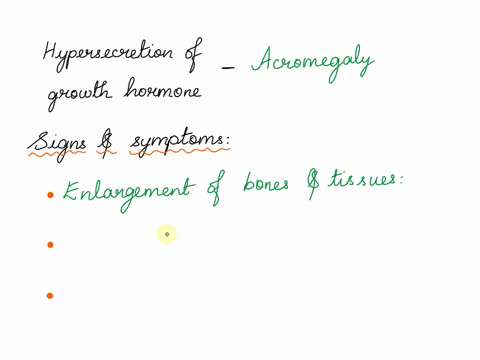 Hypersecretion of
growth hormone - Acromegaly
Signs & symptoms:
• Enlargement of bones & tissues:
•
•